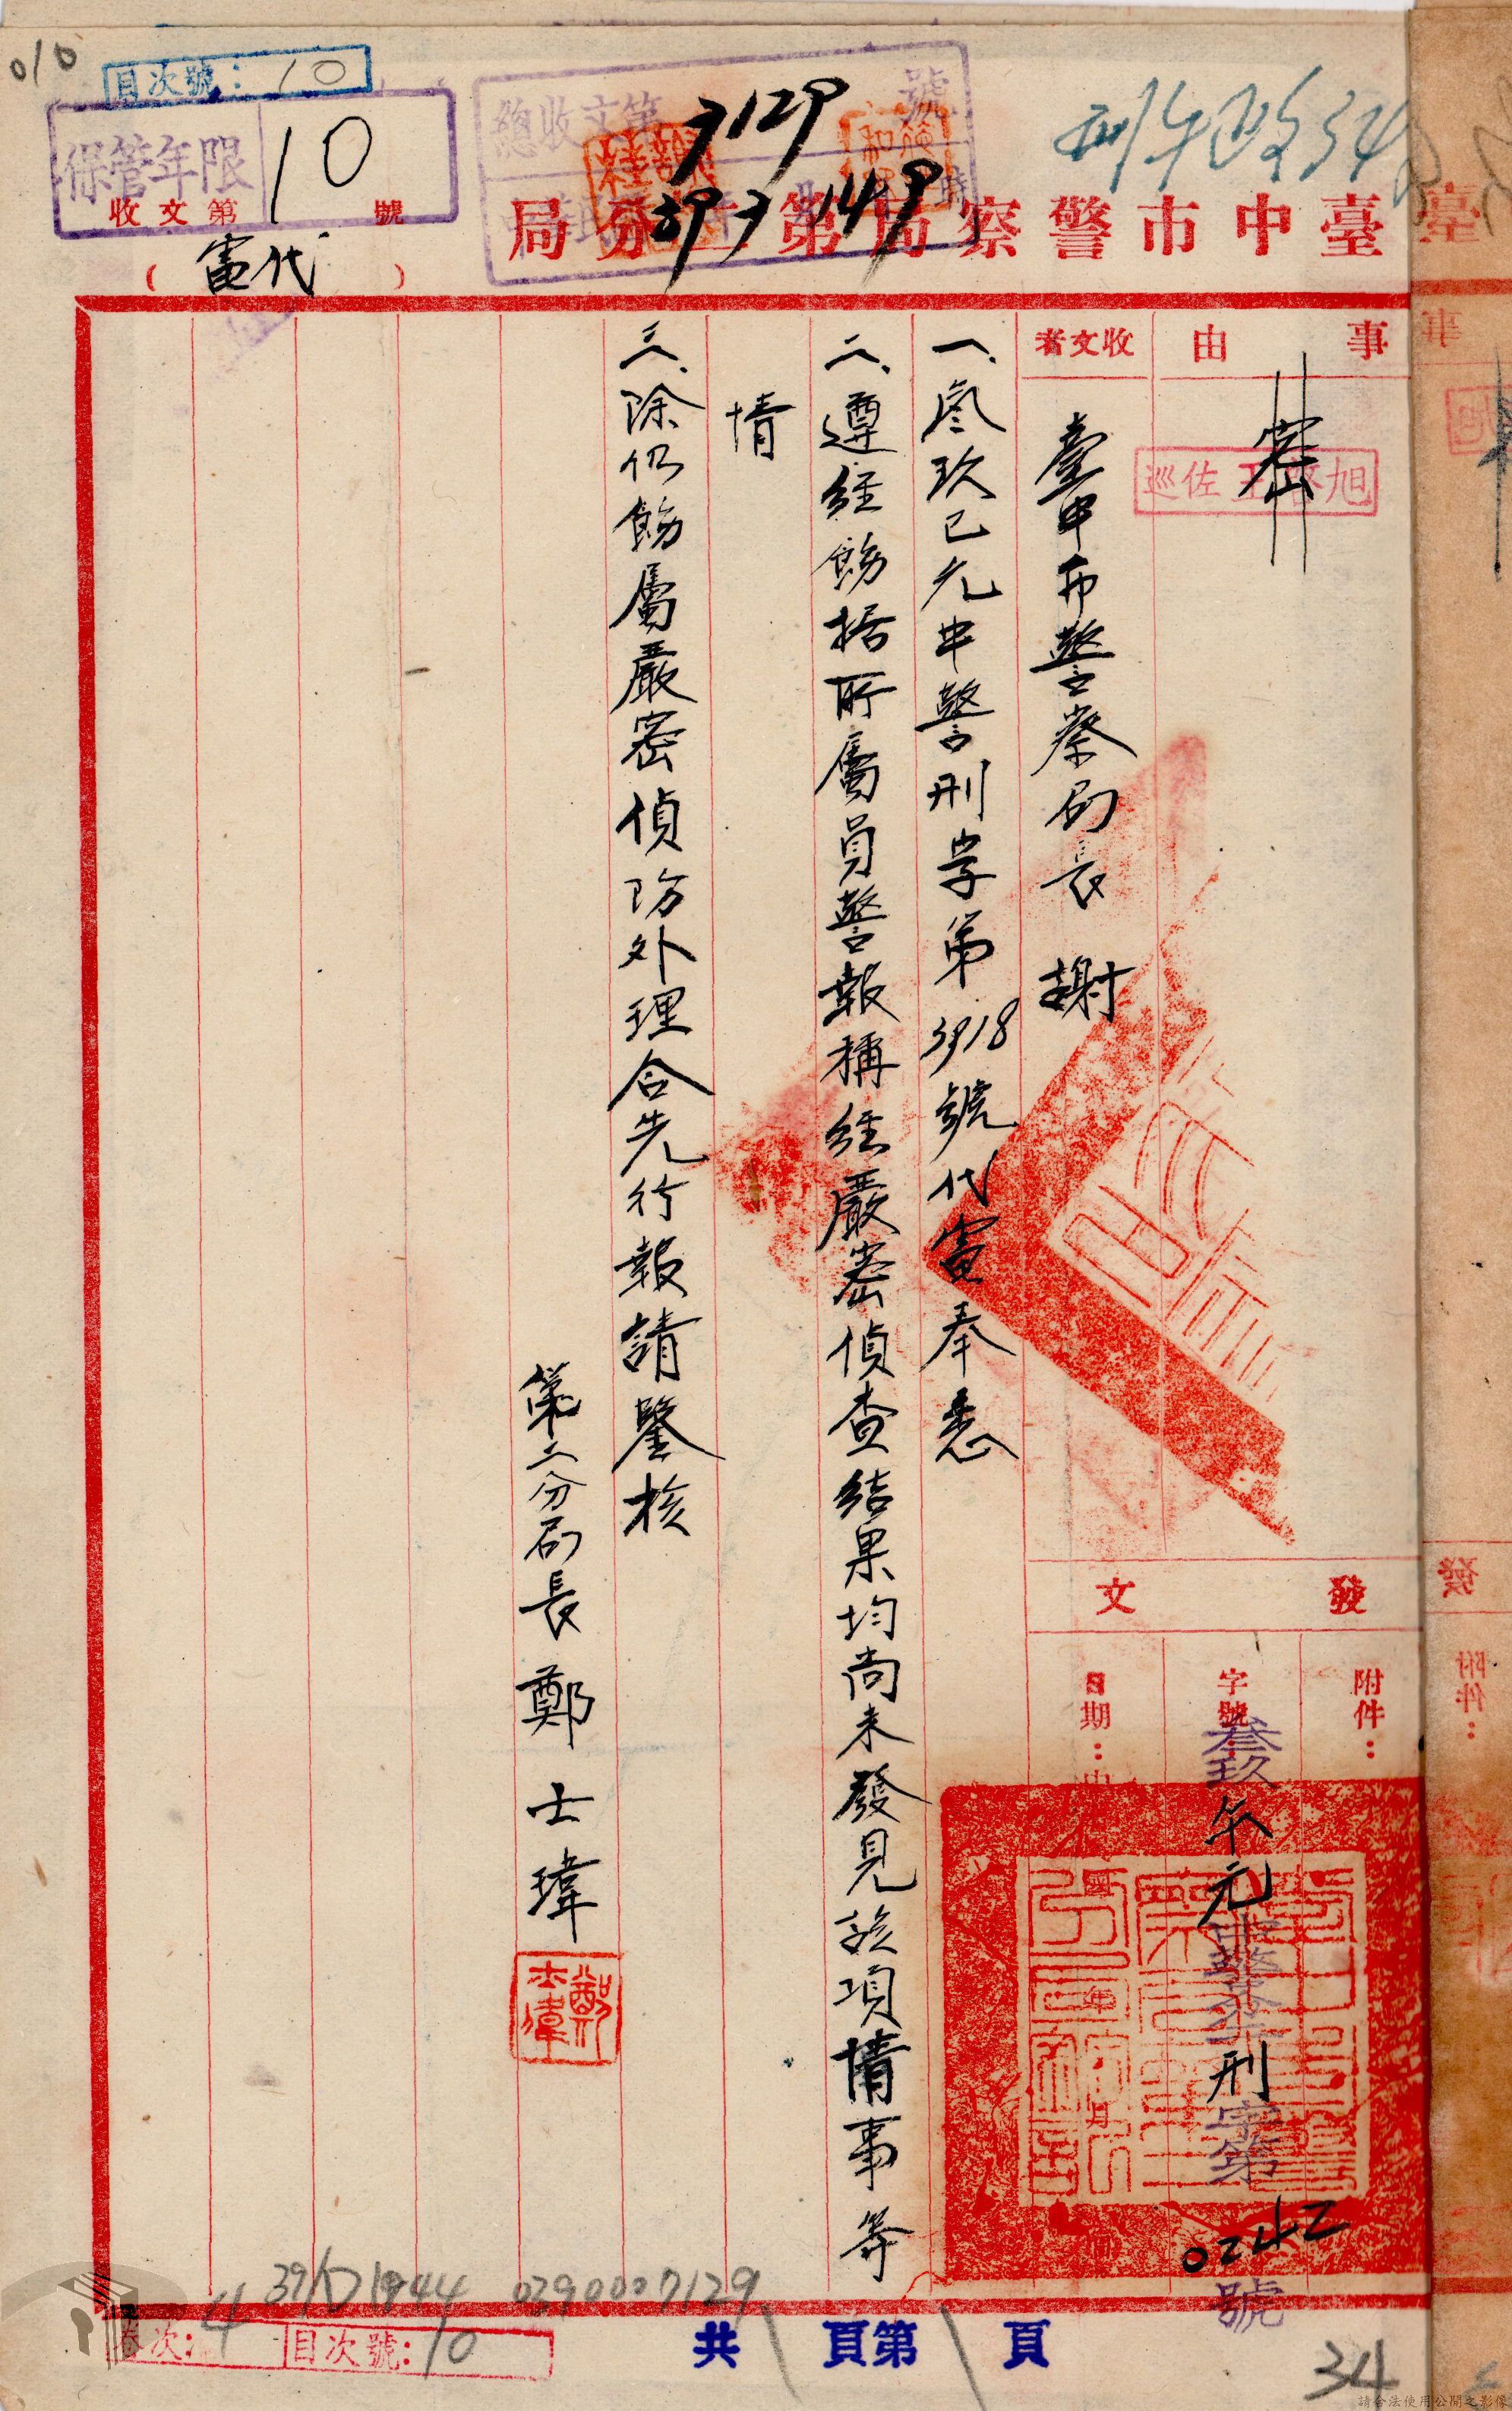 010
目次號：10
保管年限 10
收文第 號
（電代）
總收文第 號
7129
臺中市警察局第二分局
事由
密
巡佐王啓旭
收文者
臺中市警察局長 謝
發文
附件：
字號：叁玖午元中警分刑字第0242號
日期：中
一、叁玖巳元中警刑字第3918號代電奉悉
二、遵經飭据所屬員警報稱經嚴密偵查結果均尚未發見該項情事等
情
三、除仍飭屬嚴密偵防外理合先行報請鑒核
第二分局長 鄭士瑋
鄭士偉
卷次：4
目次號：10
0390007129
共1頁第1頁
34
請合法使用公開之影像